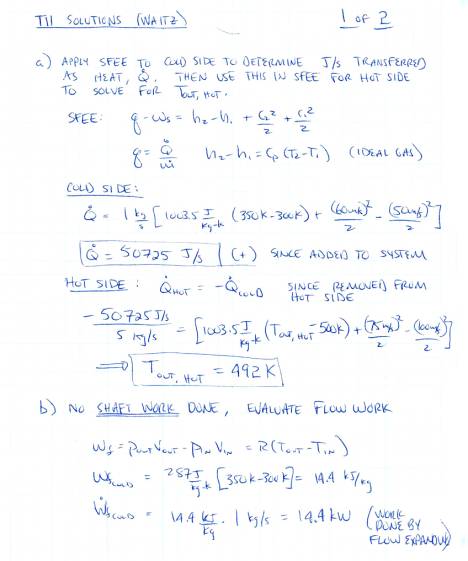 T11 SOLUTIONS (WAITZ) 1 OF 2
a) APPLY SFEE TO COLD SIDE TO DETERMINE J/s TRANSFERRED
AS HEAT, Q̇. THEN USE THIS IN SFEE FOR HOT SIDE
TO SOLVE FOR T_OUT, HOT.
SFEE: q - w_s = h₂ - h₁ + c₂²/2 + c₁²/2
q = Q̇/ṁ h₂ - h₁ = Cp (T₂ - T₁) (IDEAL GAS)
COLD SIDE:
Q̇ = 1 kg/s [1003.5 J/kg-k (350K - 300K) + (60 m/s)²/2 - (50 m/s)²/2]
Q̇ = 50725 J/s (+) SINCE ADDED TO SYSTEM
HOT SIDE: Q̇_HOT = -Q̇_COLD SINCE REMOVED FROM
HOT SIDE
-50725 J/s / 5 kg/s = [1003.5 J/kg-k (T_OUT, HOT - 500K) + (75 m/s)²/2 - (100 m/s)²/2]
⟹ T_OUT, HOT = 492 K
b) NO SHAFT WORK DONE, EVALUATE FLOW WORK
w_f = p_OUT V_OUT - p_IN V_IN = R(T_OUT - T_IN)
w_f COLD = 287 J/kg-k [350K - 300K] = 14.4 kJ/kg
ẇ_f COLD = 14.4 kJ/kg · 1 kg/s = 14.4 kW (WORK
DONE BY
FLOW EXPANDING)